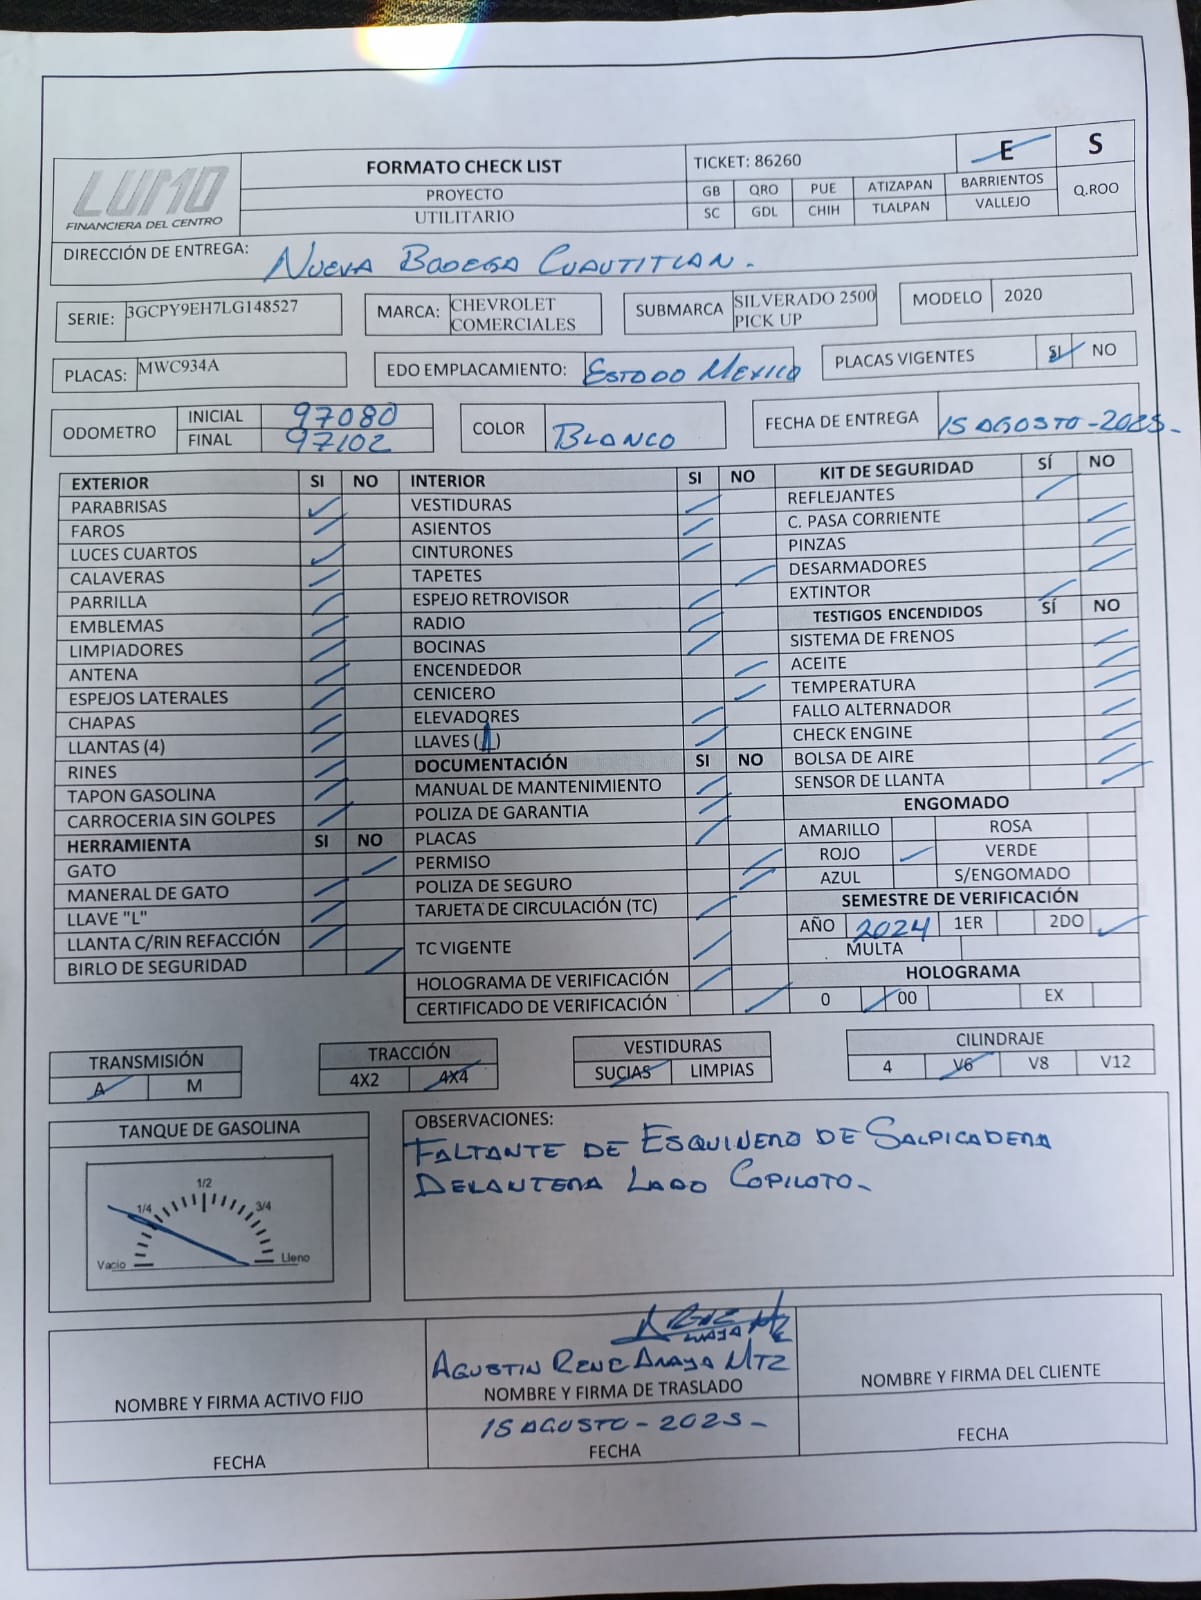 LUMO
FINANCIERA DEL CENTRO
FORMATO CHECK LIST
PROYECTO
UTILITARIO
TICKET: 86260
E S
GB QRO PUE ATIZAPAN BARRIENTOS Q.ROO
SC GDL CHIH TLALPAN VALLEJO
DIRECCIÓN DE ENTREGA: NUEVA BODEGA CUAUTITLAN.
SERIE: 3GCPY9EH7LG148527
MARCA: CHEVROLET COMERCIALES
SUBMARCA SILVERADO 2500 PICK UP
MODELO 2020
PLACAS: MWC934A
EDO EMPLACAMIENTO: ESTODO MEXICO
PLACAS VIGENTES SI NO
ODOMETRO
INICIAL 97080
FINAL 97102
COLOR BLANCO
FECHA DE ENTREGA 15 AGOSTO-2025-
EXTERIOR SI NO
PARABRISAS
FAROS
LUCES CUARTOS
CALAVERAS
PARRILLA
EMBLEMAS
LIMPIADORES
ANTENA
ESPEJOS LATERALES
CHAPAS
LLANTAS (4)
RINES
TAPON GASOLINA
CARROCERIA SIN GOLPES
HERRAMIENTA SI NO
GATO
MANERAL DE GATO
LLAVE "L"
LLANTA C/RIN REFACCIÓN
BIRLO DE SEGURIDAD
INTERIOR SI NO
VESTIDURAS
ASIENTOS
CINTURONES
TAPETES
ESPEJO RETROVISOR
RADIO
BOCINAS
ENCENDEDOR
CENICERO
ELEVADORES
LLAVES (1)
DOCUMENTACIÓN SI NO
MANUAL DE MANTENIMIENTO
POLIZA DE GARANTIA
PLACAS
PERMISO
POLIZA DE SEGURO
TARJETA DE CIRCULACIÓN (TC)
TC VIGENTE
HOLOGRAMA DE VERIFICACIÓN
CERTIFICADO DE VERIFICACIÓN
KIT DE SEGURIDAD SÍ NO
REFLEJANTES
C. PASA CORRIENTE
PINZAS
DESARMADORES
EXTINTOR
TESTIGOS ENCENDIDOS SÍ NO
SISTEMA DE FRENOS
ACEITE
TEMPERATURA
FALLO ALTERNADOR
CHECK ENGINE
BOLSA DE AIRE
SENSOR DE LLANTA
ENGOMADO
AMARILLO ROSA
ROJO VERDE
AZUL S/ENGOMADO
SEMESTRE DE VERIFICACIÓN
AÑO 2024 1ER 2DO
MULTA
HOLOGRAMA
0 00 EX
TRANSMISIÓN
A M
TRACCIÓN
4X2 4X4
VESTIDURAS
SUCIAS LIMPIAS
CILINDRAJE
4 V6 V8 V12
TANQUE DE GASOLINA
1/2
1/4 3/4
Vacio Lleno
OBSERVACIONES:
FALTANTE DE ESQUINERO DE SALPICADERA
DELANTERA LADO COPILOTO-
NOMBRE Y FIRMA ACTIVO FIJO
FECHA
AGUSTIN RENE ANAYA MTZ
NOMBRE Y FIRMA DE TRASLADO
15 AGOSTO-2025-
FECHA
NOMBRE Y FIRMA DEL CLIENTE
FECHA